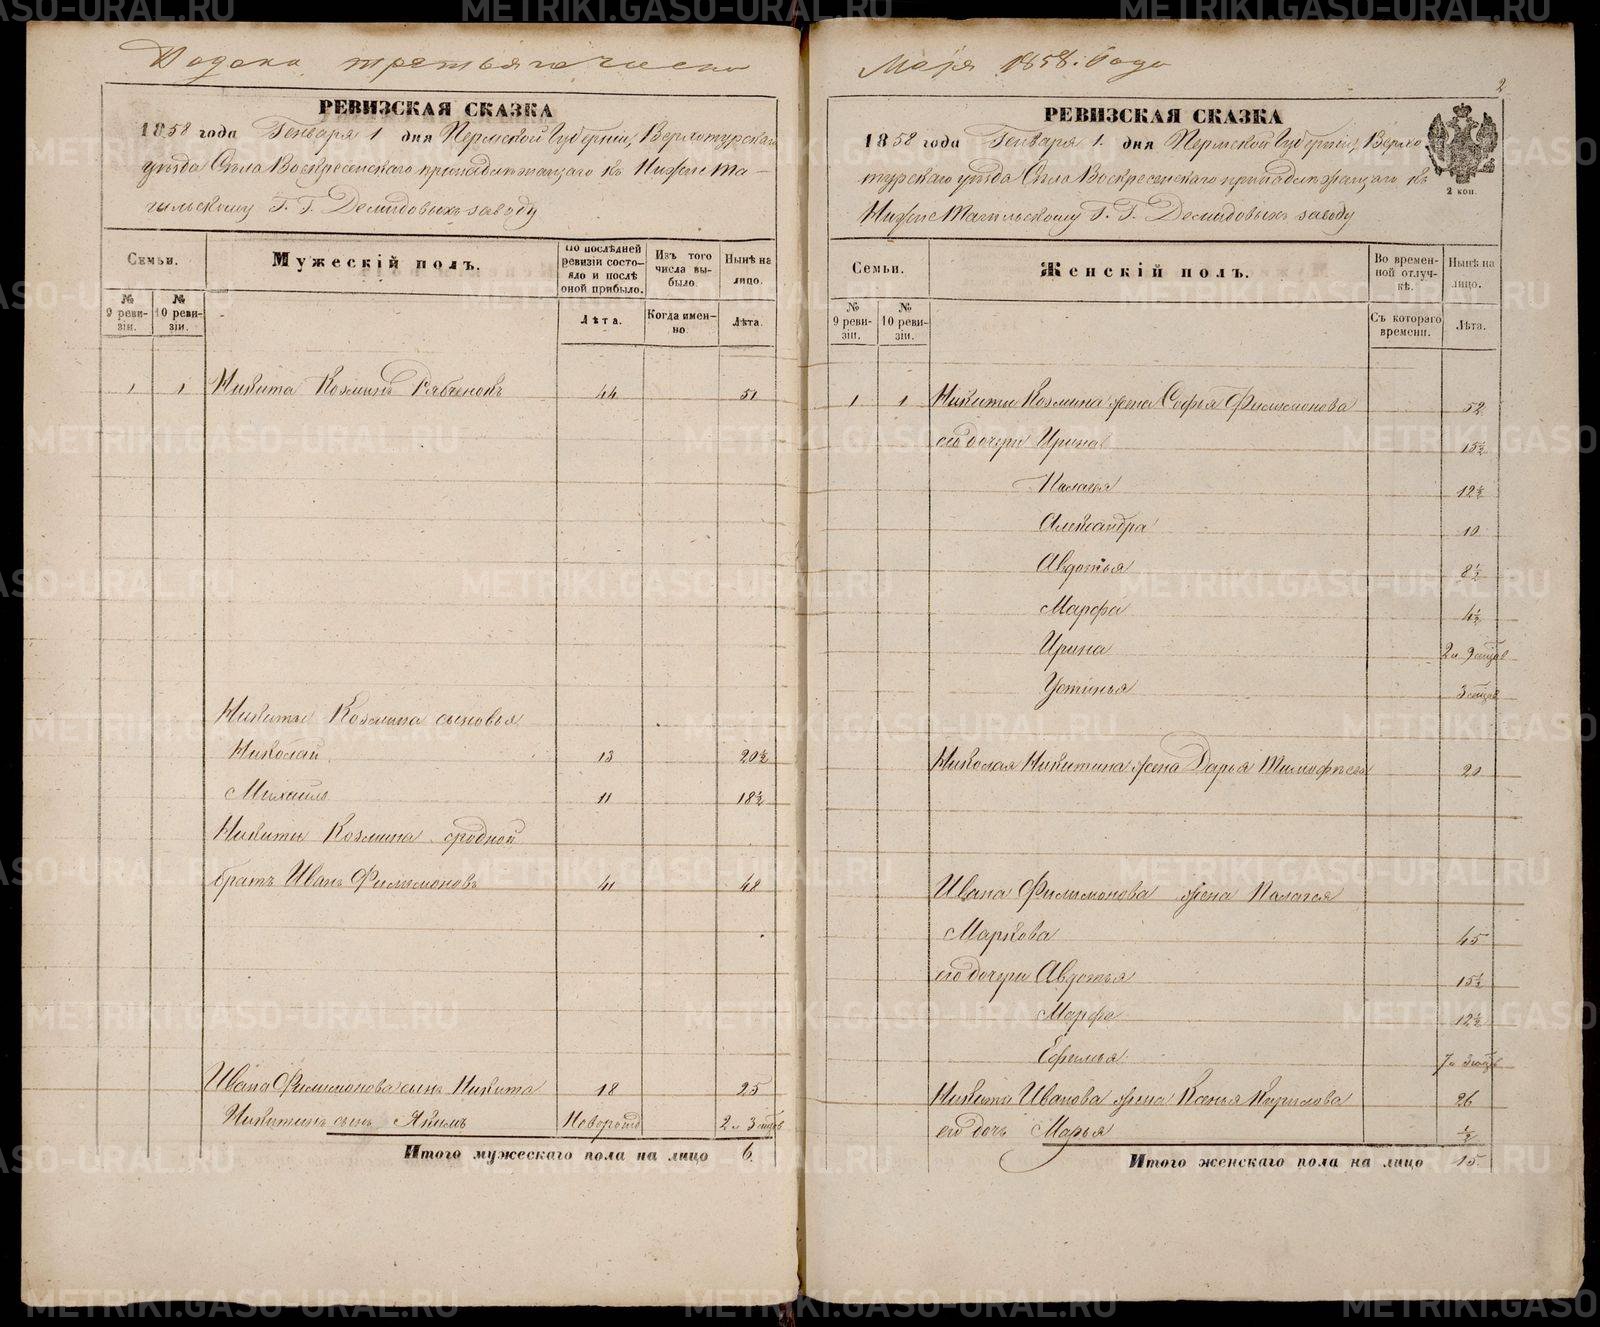 Подана третьяго числа
РЕВИЗСКАЯ СКАЗКА
1858 года Генваря 1 дня Пермской Губерніи, Верхотурскаго
уѣзда Села Воскресенскаго принадлежащаго къ Нижне Та-
гильскому Г. Г. Демидовыхъ заводу
Семьи.
Мужескій полъ.
По послѣдней ревизіи состояло и послѣ оной прибыло.
Изъ того числа выбыло.
Нынѣ на лицо.
№ 9 ревизіи.
№ 10 ревизіи.
Лѣта.
Когда именно.
Лѣта.
1 1 Никита Козминъ Рябченокъ 44 51
Никиты Козмина сыновья
Николай 13 20½
Михаилъ 11 18½
Никиты Козмина сродной
братъ Иванъ Филимоновъ 41 48
Ивана Филимонова сынъ Никита 18 25
Никитинъ сынъ Якимъ Новорожд 2 и 3 мѣсяц
Итого мужескаго пола на лицо 6.
Марта 1858. Года
2
РЕВИЗСКАЯ СКАЗКА
2 коп.
1858 года Генваря 1. дня Пермской Губерніи, Верхо
турскаго уѣзда Села Воскресенскаго принадлежащаго къ
Нижне Тагильскому Г. Г. Демидовыхъ заводу
Семьи.
Женскій полъ.
Во временной отлучкѣ.
Нынѣ на лицо.
№ 9 ревизіи.
№ 10 ревизіи.
Съ котораго времени.
Лѣта.
1 1 Никиты Козмина жена Софья Филимонова 52
его дочери Ирина 15½
Палагея 12½
Александра 10
Авдотья 8½
Марфа 4½
Ирина 2 и 9 мѣсяцов
Устинья 3 мѣсяцов
Николая Никитина жена Дарья Тимофѣева 20
Ивана Филимонова жена Палагея
Маркова 45
его дочери Авдотья 15½
Марфа 12½
Ефимья 7 и 3 мѣсяцов
Никиты Иванова жена Ксенья Кирилова 26
его дочь Марья ½
Итого женскаго пола на лицо 15.